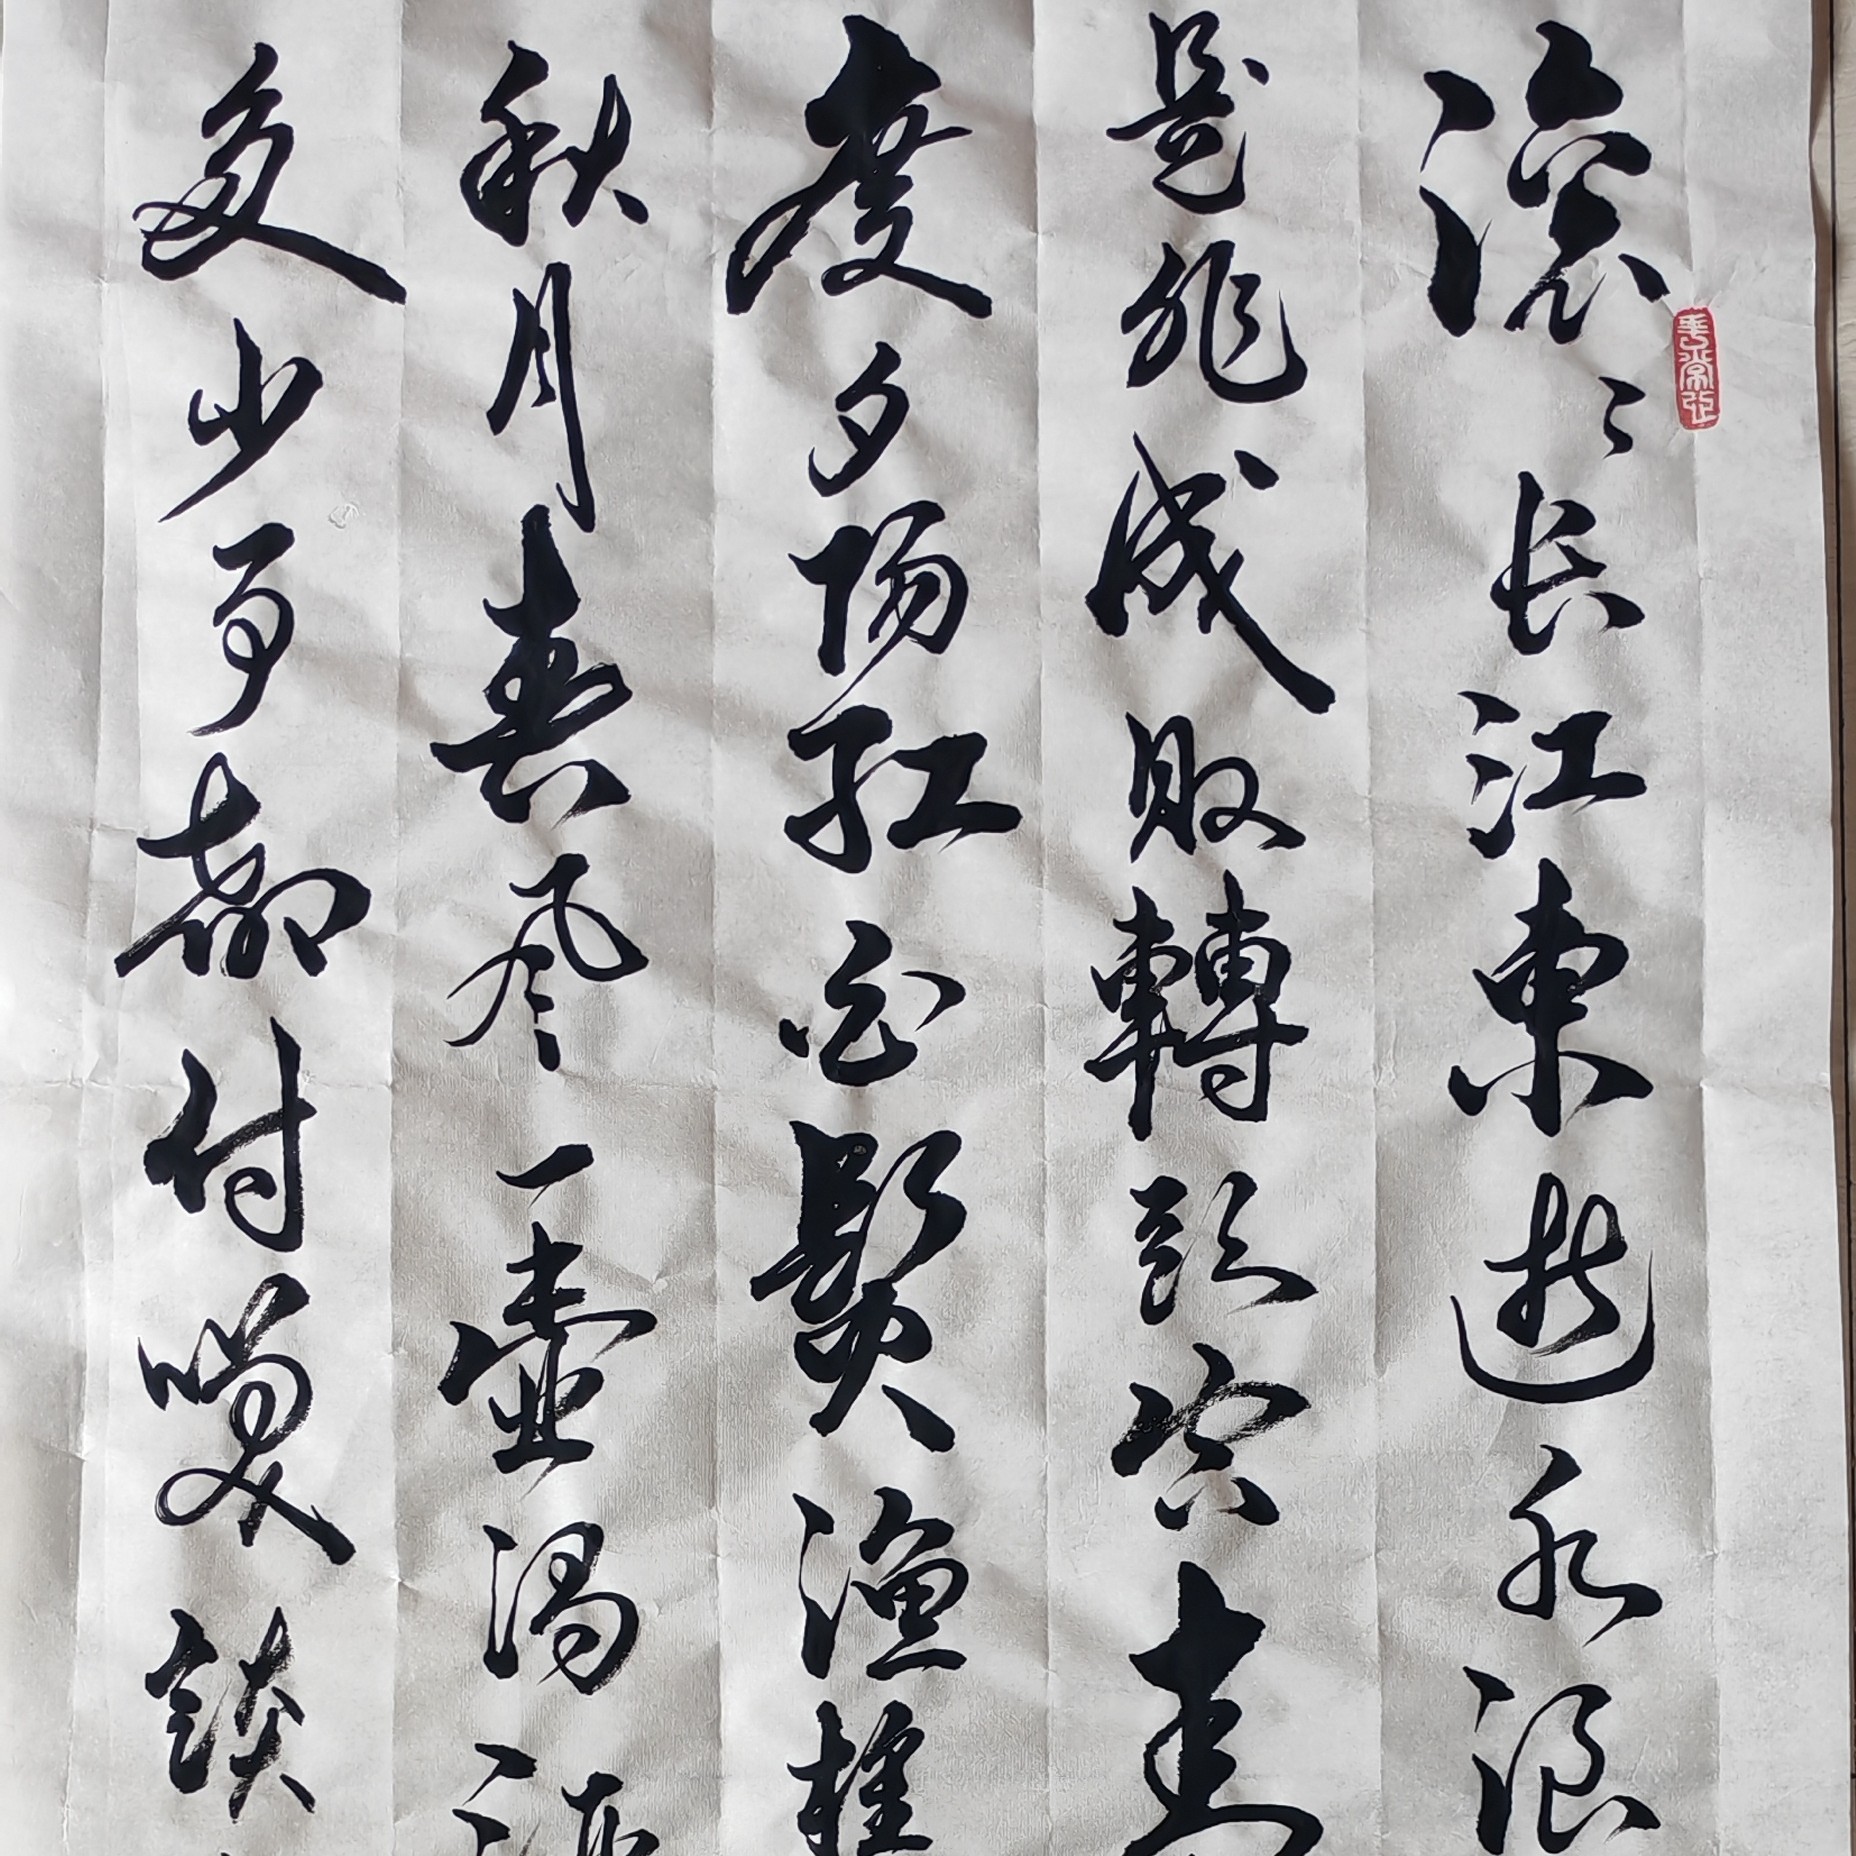 滚〻长江東逝水浪
是非成敗轉頭空青
度夕阳红白髮渔樵
秋月春风一壶濁酒
多少事都付笑談